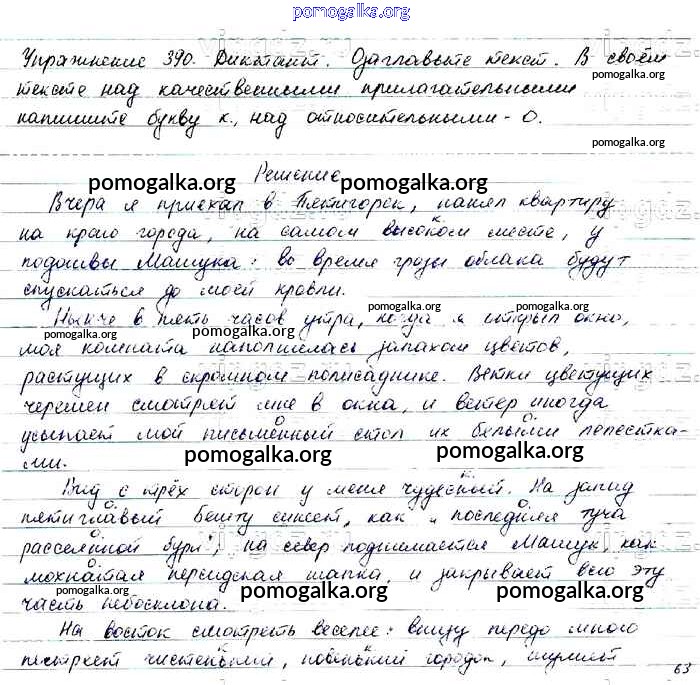 pomogalka.org
Упражнение 390. Диктант. Озаглавьте текст. В своём
pomogalka.org
тексте над качественными прилагательными
напишите букву к., над относительными - О.
pomogalka.org
Решение
pomogalka.org pomogalka.org
Вчера я приехал в Пятигорск, нанял квартиру
на краю города, на самом высоком месте, у
подошвы Машука: во время грозы облака будут
спускаться до моей кровли.
pomogalka.org
Нынче в пять часов утра, когда я открыл окно,
pomogalka.org
моя комната наполнилась запахом цветов,
растущих в скромном полисаднике. Ветки цветущих
черешен смотрят мне в окна, и ветер иногда
усыпает мой письменный стол их белыми лепестка-
ми.
pomogalka.org pomogalka.org
Вид с трёх сторон у меня чудесный. На запад
пятиглавый Бешту синеет, как „последняя туча
рассеянной бури"; на север поднимается Машук, как
мохнатая персидская шапка, и закрывает всю эту
часть небосклона.
pomogalka.org pomogalka.org pomogalka.org
На восток смотреть веселее: внизу передо мною
пестреет чистенький, новенький городок, шумят
63